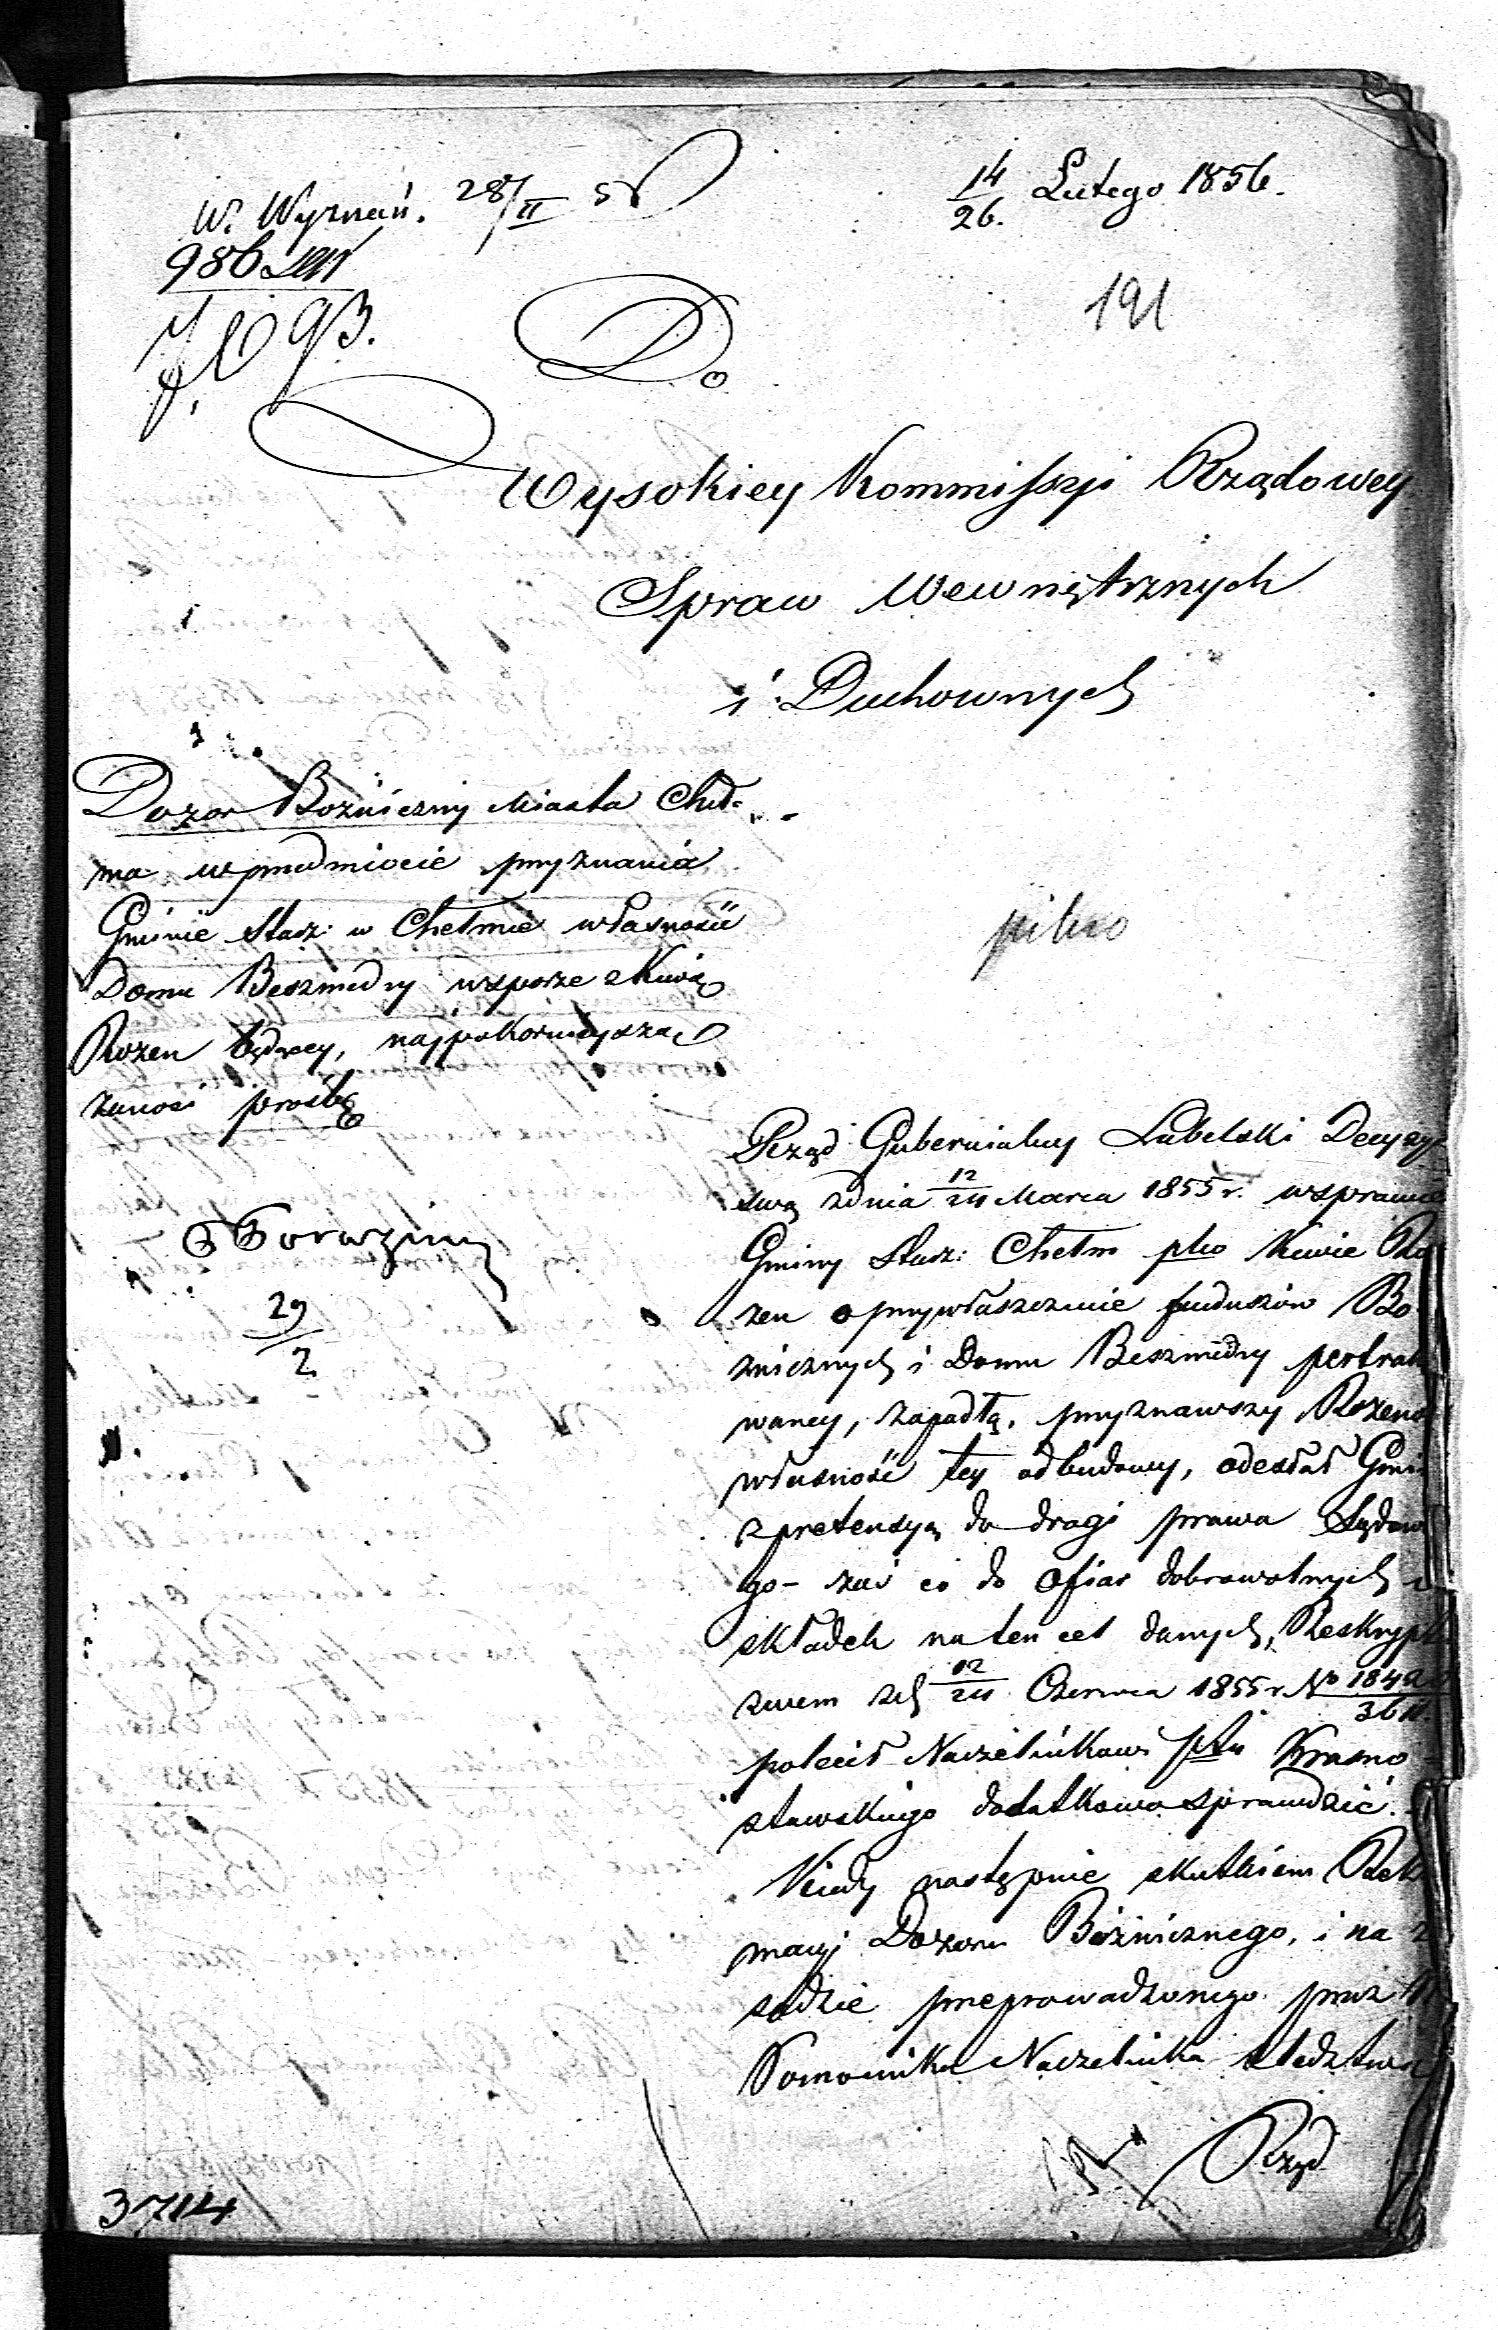 14/26. Lutego 1856.
W. Wyznań. 28/II 56
986
93.
191
Do
Wysokiey Kommissyi Rządowey
Spraw Wewnętrznych
i Duchownych
Dozor Bożniczny Miasta Cheł-
ma w przedmiocie przyznania
Gminie Starz: w Chełmie własności
Domu Beszmedry w sporze z Kiwią
Rozen będącey, najpokornieyszą
zanosi prośbę
pilno
29/2
Rząd Gubernialny Lubelski Decyzyą
swą z dnia 12/24 Marca 1855 r. w sprawie
Gminy Starz: Chełm pko Kiwie Ro
zen o przywłaszczenie funduszów Bo
żnicznych i Domu Beszmedry pertrak
waney, zapadłą, przyznawszy Rozeno
własność tey odbudowy, odesłał Gmi
z pretensyą do drogi prawa Sądow
go - zaś co do ofiar dobrowolnych i
składek na ten cel danych, Reskryp
zwem z d 12/24 Czerwca 1855 r. No
polecił Naczelnikowi ptu Krasno
stawskiego dodatkowo sprawdzić.
Kiedy następnie skutkiem Rek
macyi Dozoru Bóżnicznego, i na z
sadzie przeprowadzonego przez
Pomocnika Naczelnika śledztwa
Rząd
3714